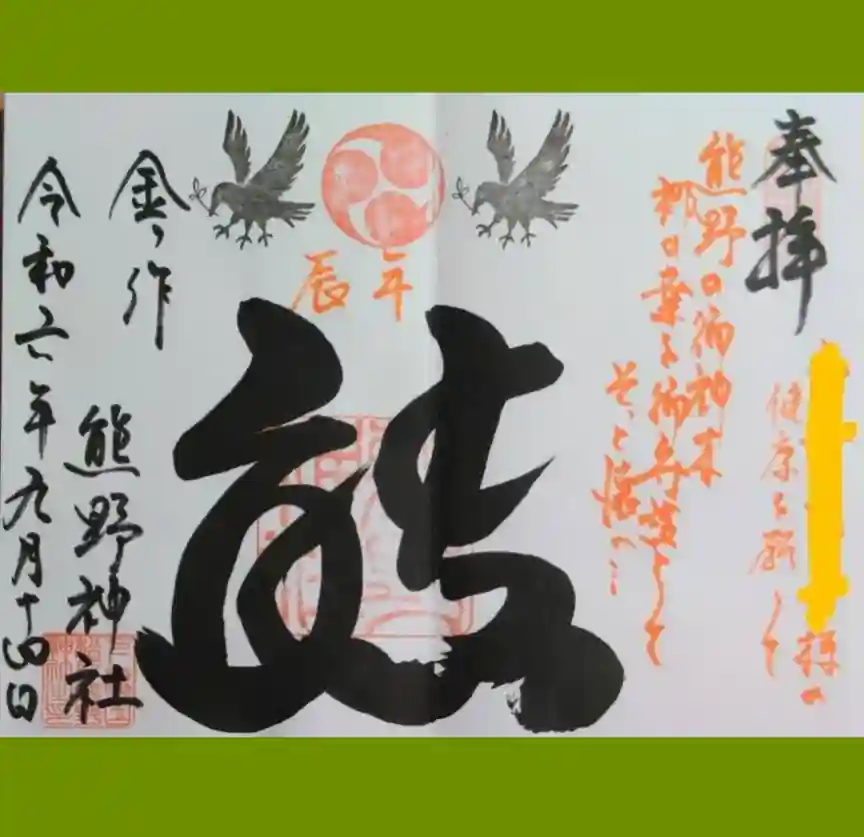 奉拝
様の
健康を願って
熊野の御神木
梛の葉を御守護として
そっと懐へ…
辰年
熊
金ヶ作
熊野神社
令和六年九月十四日